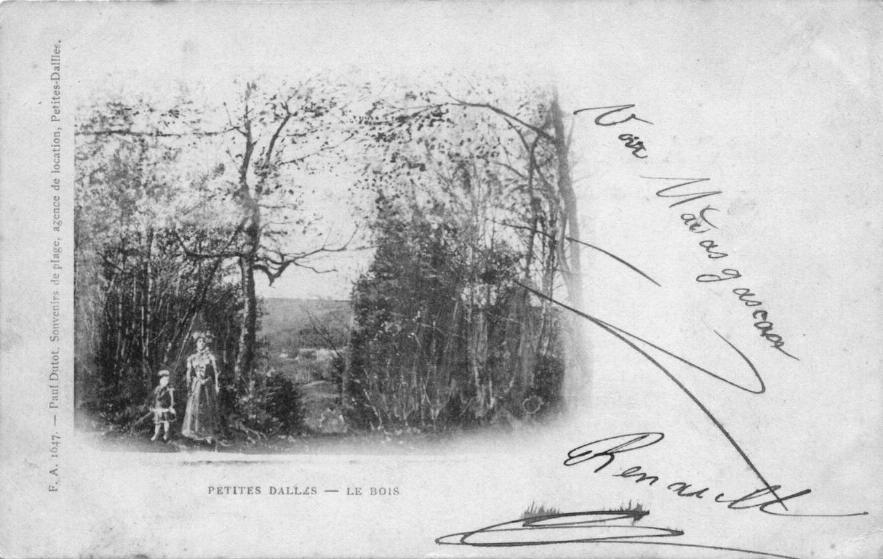 F. A. 1647. — Paul Dutot. Souvenirs de plage, agence de location, Petites-Dalles.
PETITES DALLES — LE BOIS
Renault